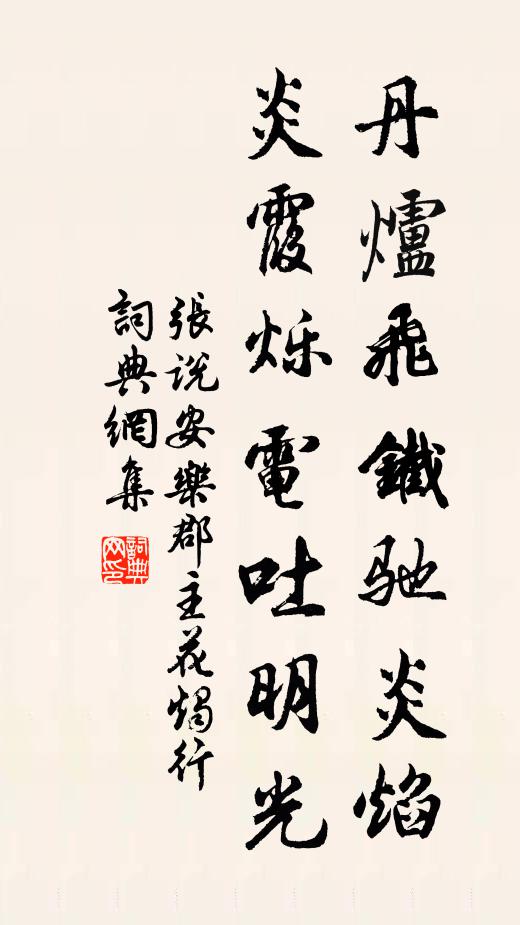 丹爐飛鐵馳炎焰
炎霞烁電吐明光
張说安樂郡主花燭行
詞典網集
詞典网印